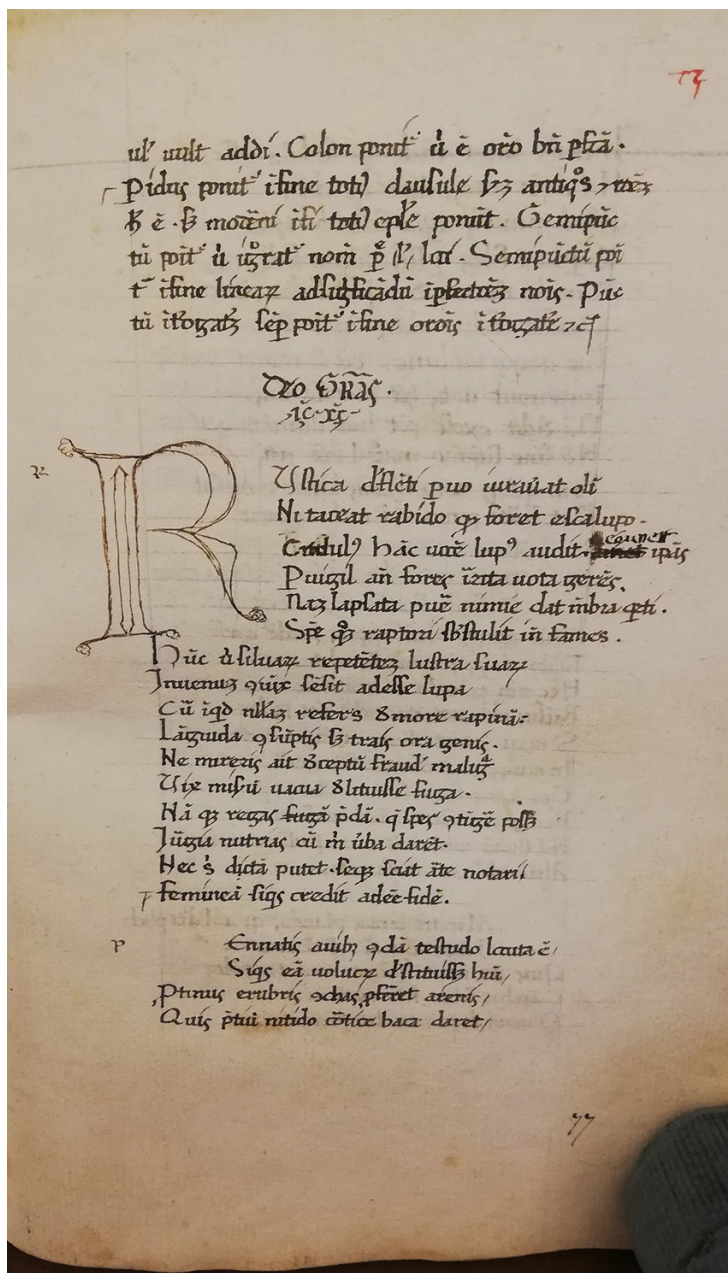 ul' uult addi. Colon ponit' ů ē oro bn̄ pfcā.
Pidus ponit' ī fine toti9 clausule sꝫ antiq̊s
h̄ ē. sꝫ moderni ī fī toti9 eple ponūt. Gemipūc
tū poit' ů īgrat' nom̄
tū. Semipūctū poi
t' ī fine linearꝝ ad significādū īpfectōeꝫ nois. Pūc
tū īrogatꝫ sēp poit' ī fine orōis
Deo Gr̄ās.
R
Vstica d'flēti puo iuraūat oli
Ni taceat rabido qꝫ foret esca lupo.
Credul9 hāc uocē lup9 audit. ipās
Puigil añ fores irrita uota gerēs.
Naꝫ lapsata pue nimie dat mēbra qeti.
Spē qꝫ raptori sbstulit īn fames.
Hūc ů siluarꝝ repetēteꝫ lustra suarꝝ
Inuenꝫ ꝯiūx sēsit adesse lupa
Cū īqd nllaꝫ refers de more rapinā:
Lāguida ꝯsūptis sꝫ trais ora genis.
Ne mireris ait deceptū fraude maligͣ
Vix miserū uacua delituisse fuga.
Nā qꝫ rogas fugā p̄dā. q̄ spes ꝯtigē possꝫ
Iurgia nutrias cū m̄ uerba darēt.
Hec s dictā putet. seqꝫ sciat āte notari
femineā siqs credit adeē fidē.
P
Ennatis auibꝫ qdā testudo locuta ē
Siqs eā uolucrꝝ d'stituissꝫ hui
Ptinus erubris ꝯchas pferret arenis
Quis ptiū nitido cōtice baca daret
77